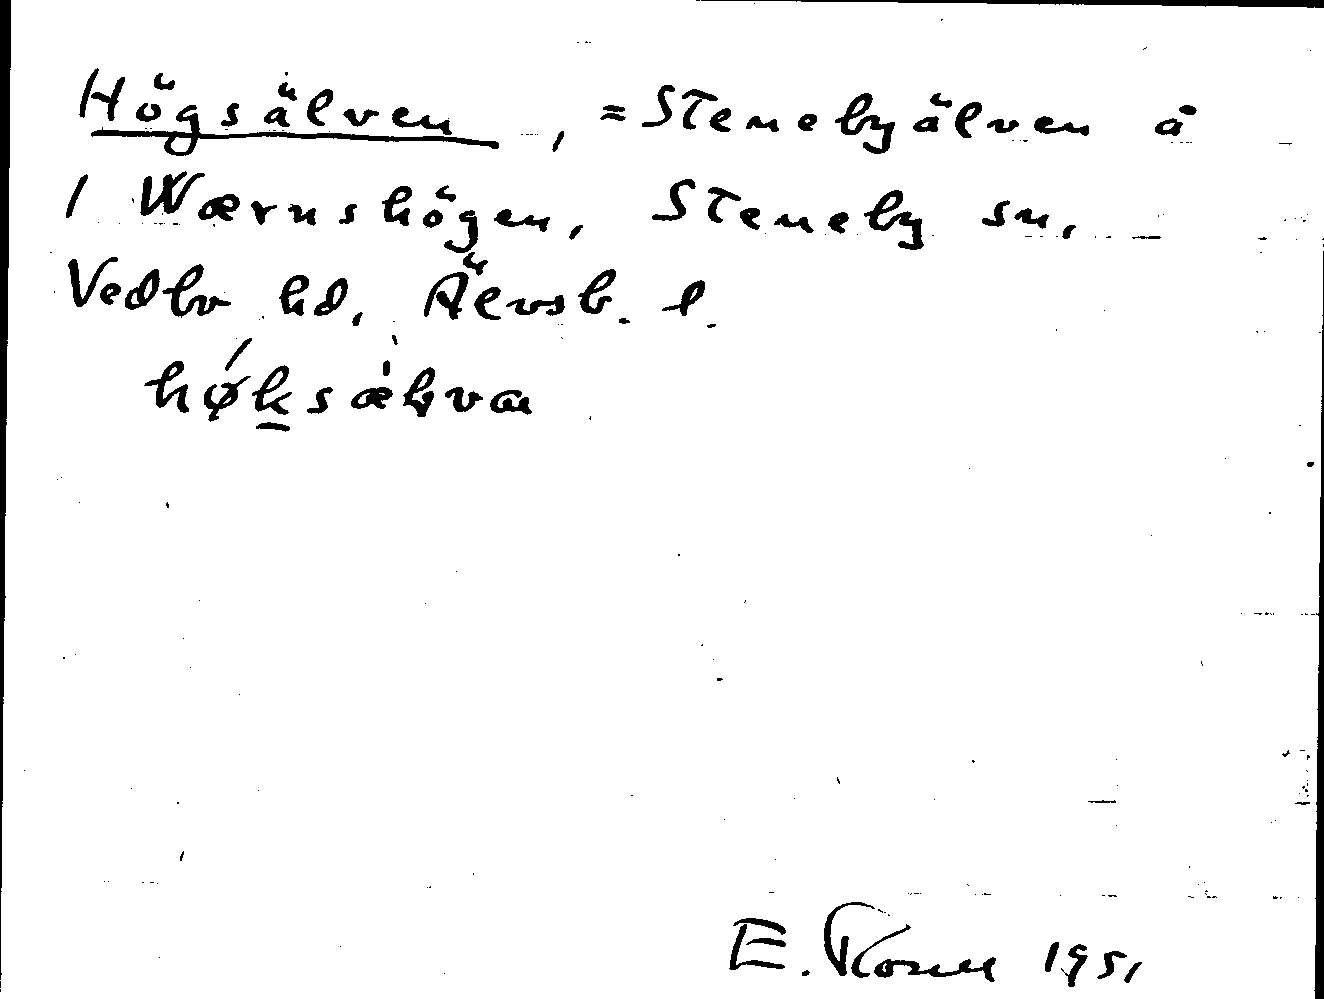 Högsälven, = Stenebyälven å
1 Wærnshögen, Steneby sn,
Vedbo hd, Älvsb. l.
høksælva
E. 1951